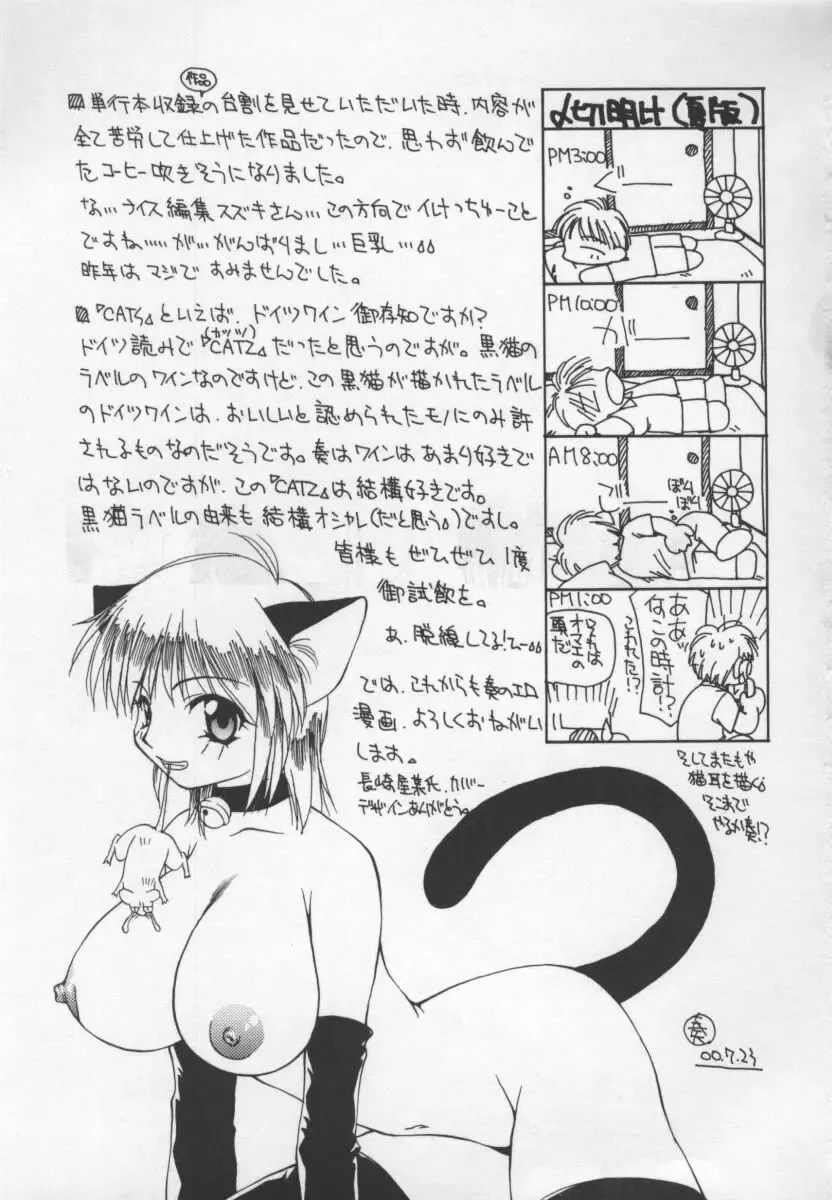 作品
単行本収録の台割を見せていただいた時、内容が
全て苦労して仕上げた作品だったので、思わず飲んで
たコーヒー吹きそうになりました。
な…ライス編集スズキさん…この方向でイけっちゅーこと
ですね……が…がんばりまし…巨乳…
昨年はマジですみませんでした。
『CATS』といえば、ドイツワイン御存知ですか?
(カッツ)
ドイツ読みで『CATZ』だったと思うのですが。黒猫の
ラベルのワインなのですけど、この黒猫が描かれたラベル
のドイツワインは、おいしいと認められたモノにのみ許
されるものなのだそうです。奏はワインはあまり好きで
はないのですが、この『CATZ』は結構好きです。
黒猫ラベルの由来も結構オシャレ(だと思う。)ですし。
皆様もぜひぜひ1度
御試飲を。
あ、脱線してる!てー
では、これからも奏のエロ
漫画、よろしくおねがい
します。
長崎屋某氏、カバー
デザインありがとう。
〆切明け(夏版)
PM3:00
PM10:00
が
AM8:00
ぼり
ぼり
PM1:00
ああッ
なにこの時計!?
こわれた!?
こわれてるのは
オマエの
頭だ
そしてまたもや
猫耳を描く
そこまで
やるか奏!?
奏
00.7.23